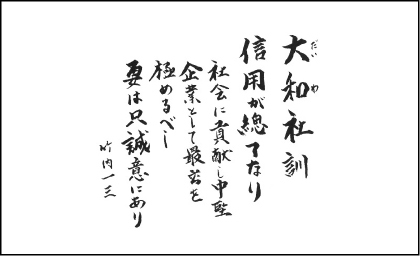 大和社訓
だいわ
信用が總てなり
社会に貢献し中堅
企業として最高を
極めるべし
要は只誠意にあり
竹内一三